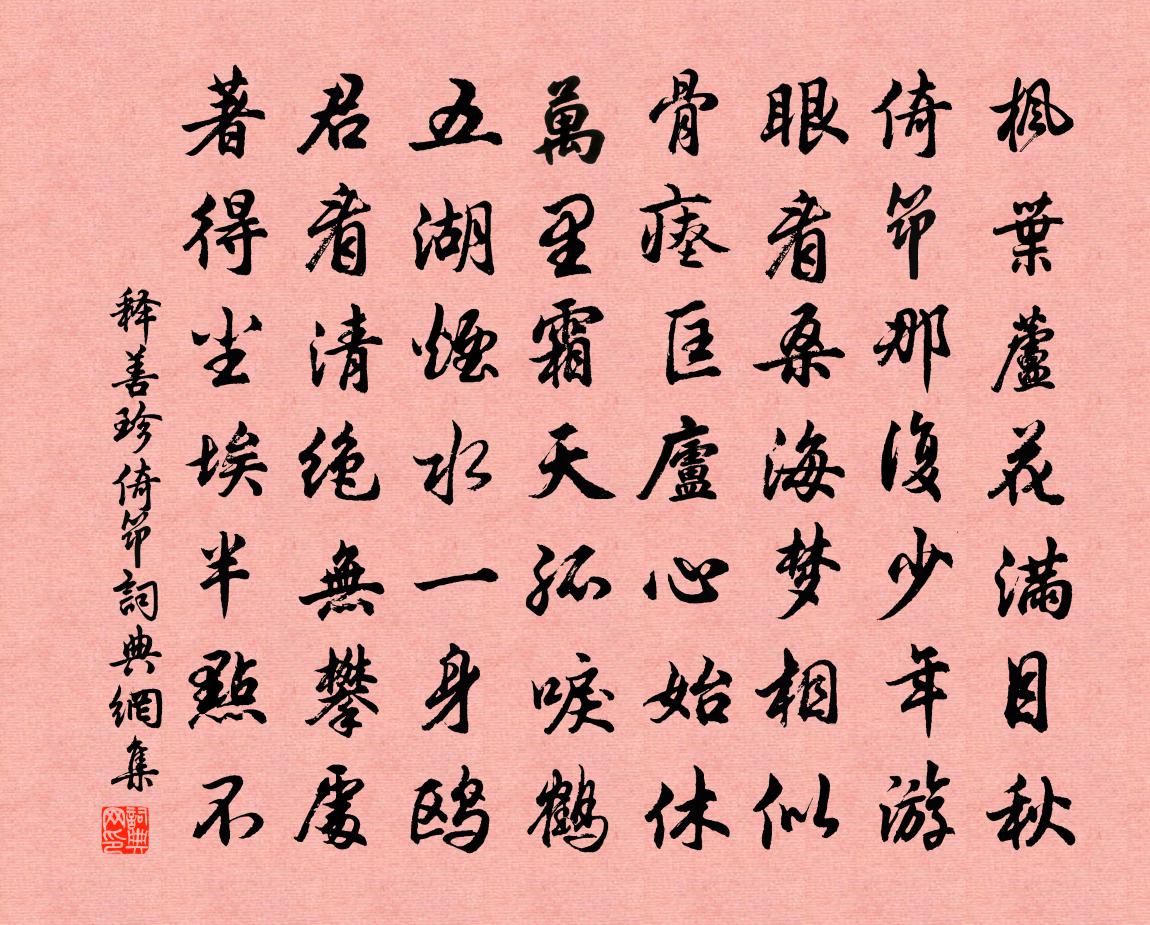 楓葉蘆花滿目秋
倚筇那復少年游
眼看桑海梦相似
骨瘞匡廬心始休
萬里霜天孤唳鶴
五湖煙水一身鸥
君看清绝無攀處
著得尘埃半點不
释善珍倚筇詞典網集
詞典网印